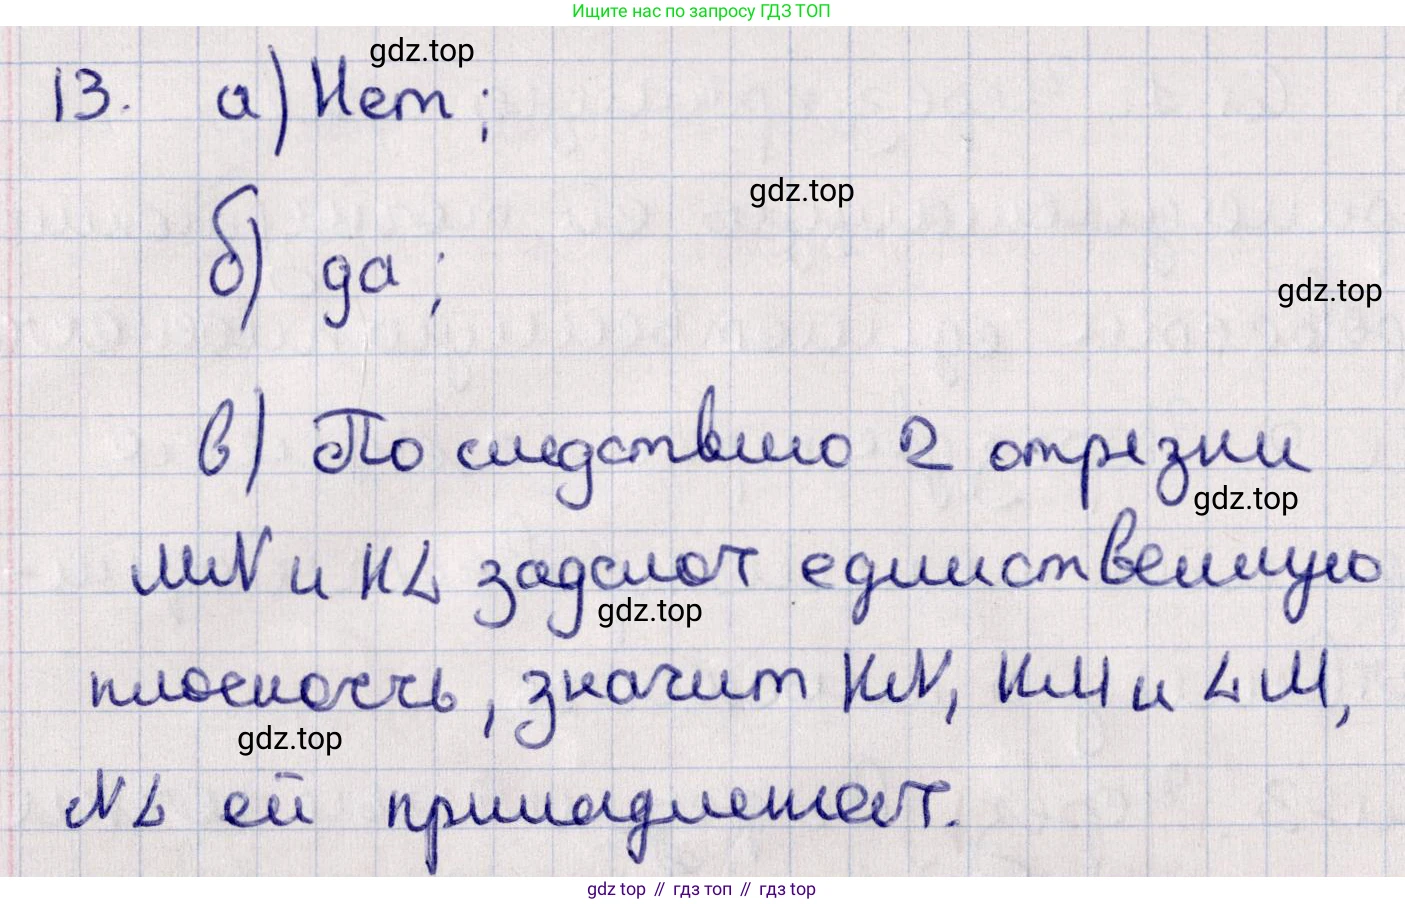 Ищите нас по запросу ГДЗ ТОП
gdz.top
13. а) Нет;
gdz.top
б) да;
gdz.top
в) По следствию 2 отрезки
gdz.top
MN и KL задают единственную
gdz.top
плоскость, значит KN, KM и LM,
gdz.top
NL ей принадлежат.
gdz top // гдз топ // гдз top